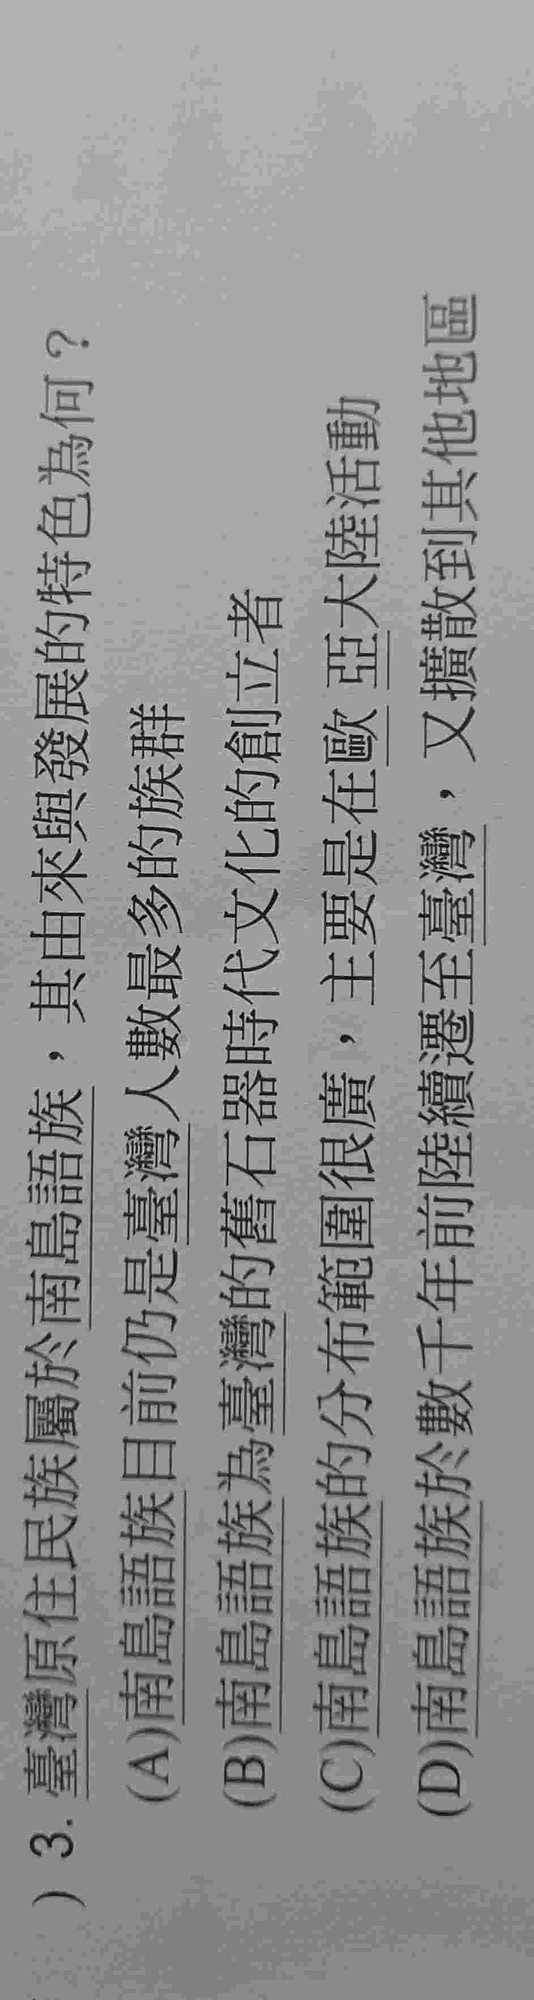 )3. 臺灣原住民族屬於南島語族，其由來與發展的特色為何？
(A)南島語族目前仍是臺灣人數最多的族群
(B)南島語族為臺灣的舊石器時代文化的創立者
(C)南島語族的分布範圍很廣，主要是在歐 亞大陸活動
(D)南島語族於數千年前陸續遷至臺灣，又擴散到其他地區